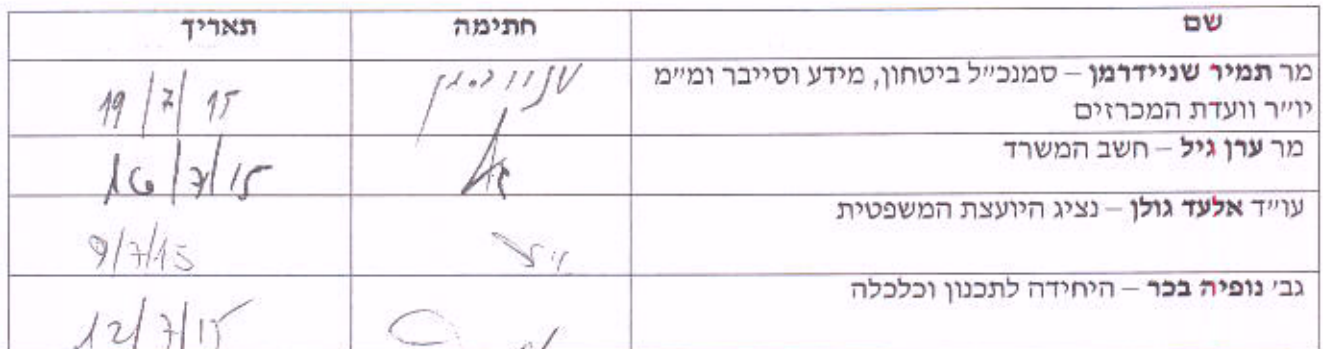 שם חתימה תאריך
מר תמיר שניידרמן – סמנכ״ל ביטחון, מידע וסייבר ומ״מ 19/7/15
יו״ר וועדת המכרזים
מר ערן גיל – חשב המשרד 16/7/15
עו״ד אלעד גולן – נציג היועצת המשפטית 9/7/15
גב׳ נופיה בכר – היחידה לתכנון וכלכלה 12/7/15